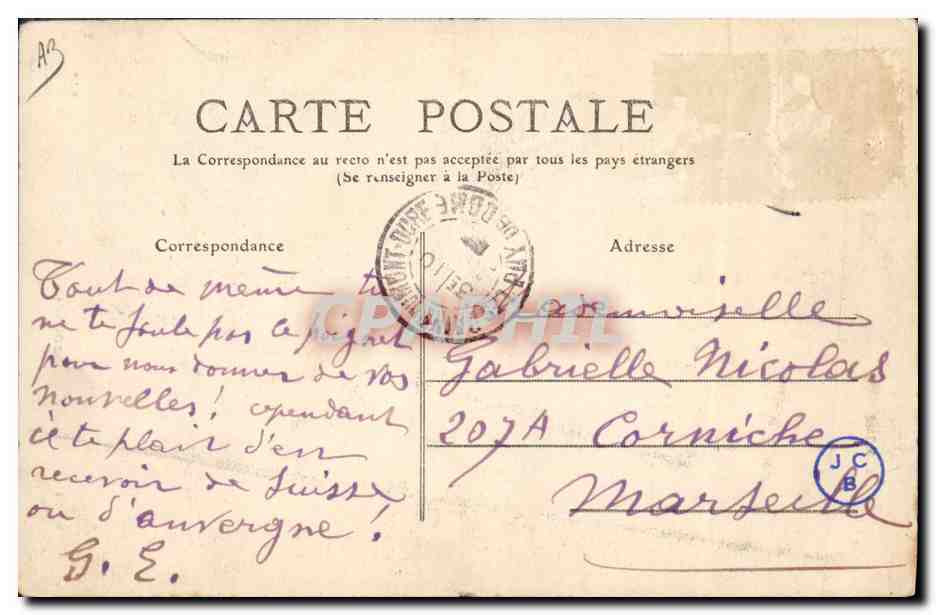 AB
CARTE POSTALE
La Correspondance au recto n'est pas acceptée par tous les pays étrangers
(Se renseigner à la Poste)
Correspondance
Tout de même tu
ne te foule pas le poignet
pour nous donner de vos
nouvelles! cependant
il te plait d'en
recevoir de Suisse
ou d'auvergne!
G. E.
PUY DE DOME
CPAPHIL
Adresse
Mademoiselle
Gabrielle Nicolas
207A Corniche
Marseille
J C
B